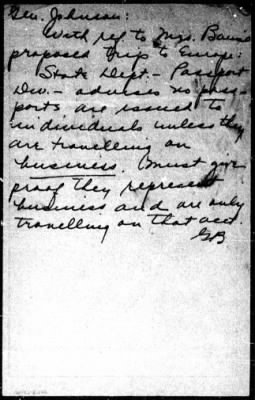 Gen. Johnson:
With ref to Mrs. Baume
proposed trip to Europe:
State Dept. - Passport
Div. - advises no pass-
ports are issued to
individuals unless they
are travelling on
business. Must give
proof they represent
business and are only
travelling on that acc.
GB